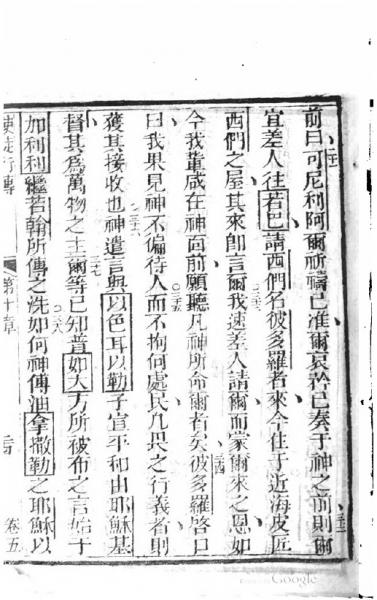 前曰可尼利阿爾祈禱已准爾哀矜已奏于神之前則爾
宜差人往若巴請西們名彼多羅者來今住于近海皮匠
西們之屋其來即言爾我速差人請爾而蒙爾來之恩如
今我輩咸在神面前願聽凡神所命爾者矣彼多羅啓口
曰我果見神不偏待人而不拘何處民凡畏之行義者則
獲其接收也神遣言與以色耳以勒子宣平和由耶穌基
督其為萬物之主爾等已知普如大方所被布之言始于
加利利繼若翰所傳之洗如何神傅油拿撒勒之耶穌以
使徒行傳 第十章 卷五
Google